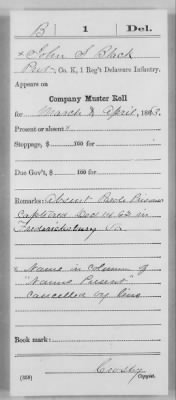 B | 1 | Del.
x John S Black
Pvt, Co. K, 1 Reg't Delaware Infantry.
Appears on
Company Muster Roll
for March & April, 1863.
Present or absent
Stoppage, $ 100 for
Due Gov't, $ 100 for
Remarks: Absent Parole Prisoner
Captured Dec 14 62 in
Fredericksburg Va
x Name in column of
"Names Present"
cancelled by line
Book mark:
Crosby
(358) Copyist.